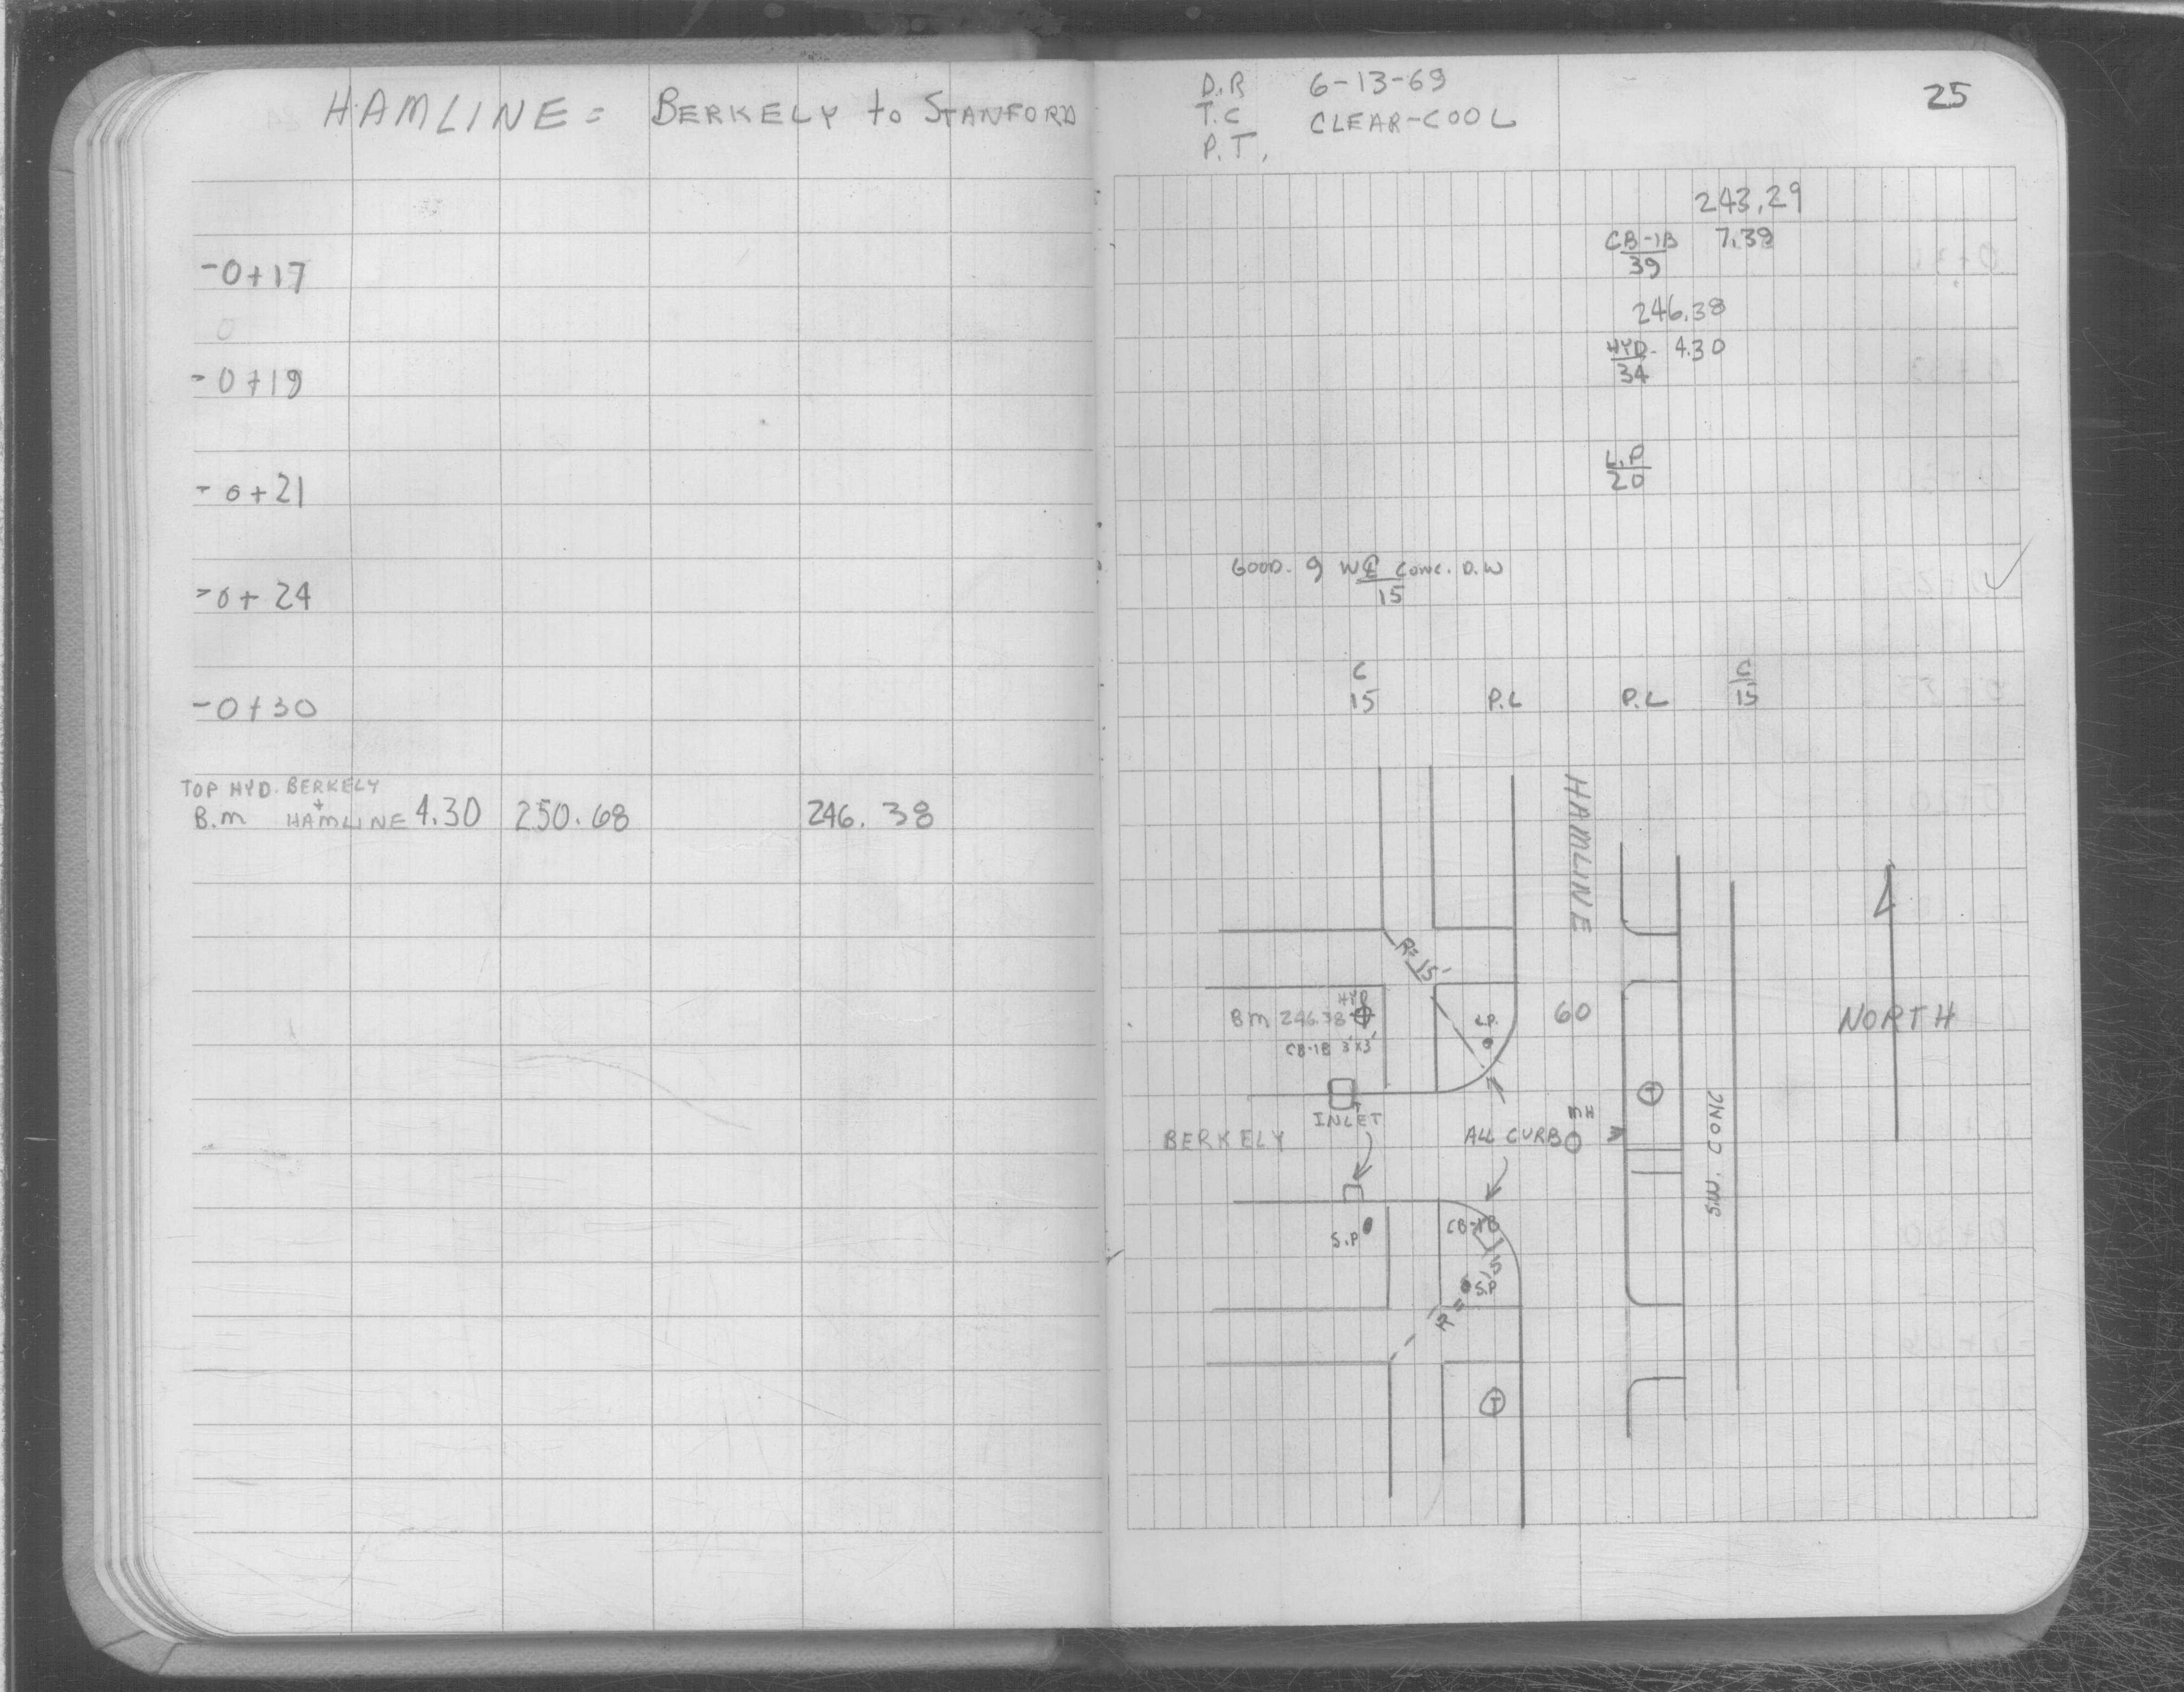 HAMLINE = BERKELY to STANFORD
-0+17
0
-0+19
-0+21
-0+24
-0+30
TOP HYD. BERKELY
+
B.M HAMLINE 4.30 250.68 246.38
D.R 6-13-69
T.C CLEAR-COOL
P.T.
25
243.29
CB-1B 7.39
39
246.38
HYD. 4.30
34
L.P
20
GOOD. 9 W℄ CONC. D.W
15
C C
15 P.L P.L 15
HAMLINE
R=15'
HYD
BM 246.38
L.P.
60
NORTH
CB-1B 3'x3'
MH
INLET
BERKELY ALL CURB
W
S.W. CONC
CB-1B
S.P
S.P
R = 15
T
T